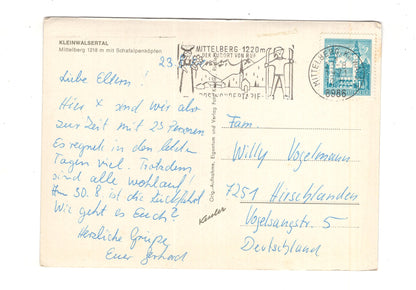 KLEINWALSERTAL
Mittelberg 1218 m mit Schafalpenköpfen
23.8.
MITTELBERG·1220m
DER KURORT VON RUF
Liebe Eltern!
Hier sind wir also
zur Zeit mit 23 Personen
Es regnete in den letzten
Tagen viel. Trotzdem
sind alle wohlauf!
Am 30.8 ist die Rückfahrt
Wie geht es Euch?
Herzliche Grüße
Euer Gerhard
Orig.-Aufnahme, Eigentum und Verlag
Kessler
MITTELBERG
6986
Fam.
Willy Vogelmann
7251 Hirschlanden
Vogelsangstr. 5
Deutschland